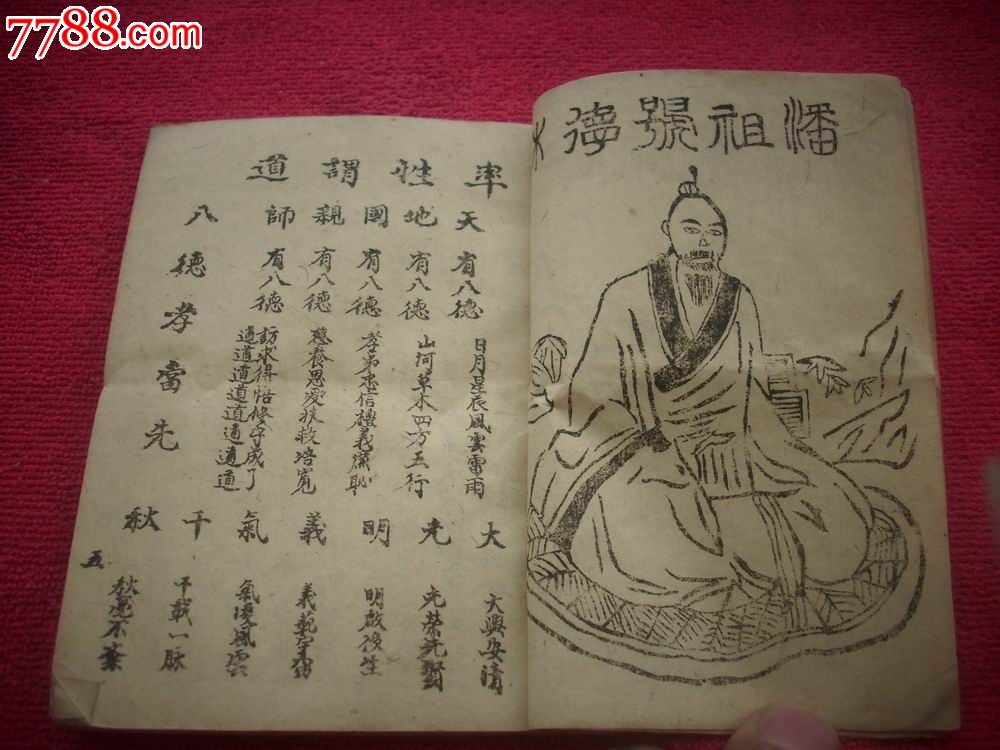 7788.com
潘祖號德
率性謂道
天有八德 日月星辰風雲雷雨
地有八德 山河草木四方五行
國有八德 孝弟忠信禮義廉恥
親有八德 慈養恩愛扶救培寬
師有八德 訪求得悟修守成了
道道道道道道道道
八德孝當先
大光明義氣千秋
大興安清
光榮
明啟後生
義
氣凌風雲
千載一脉
秋邁不
五